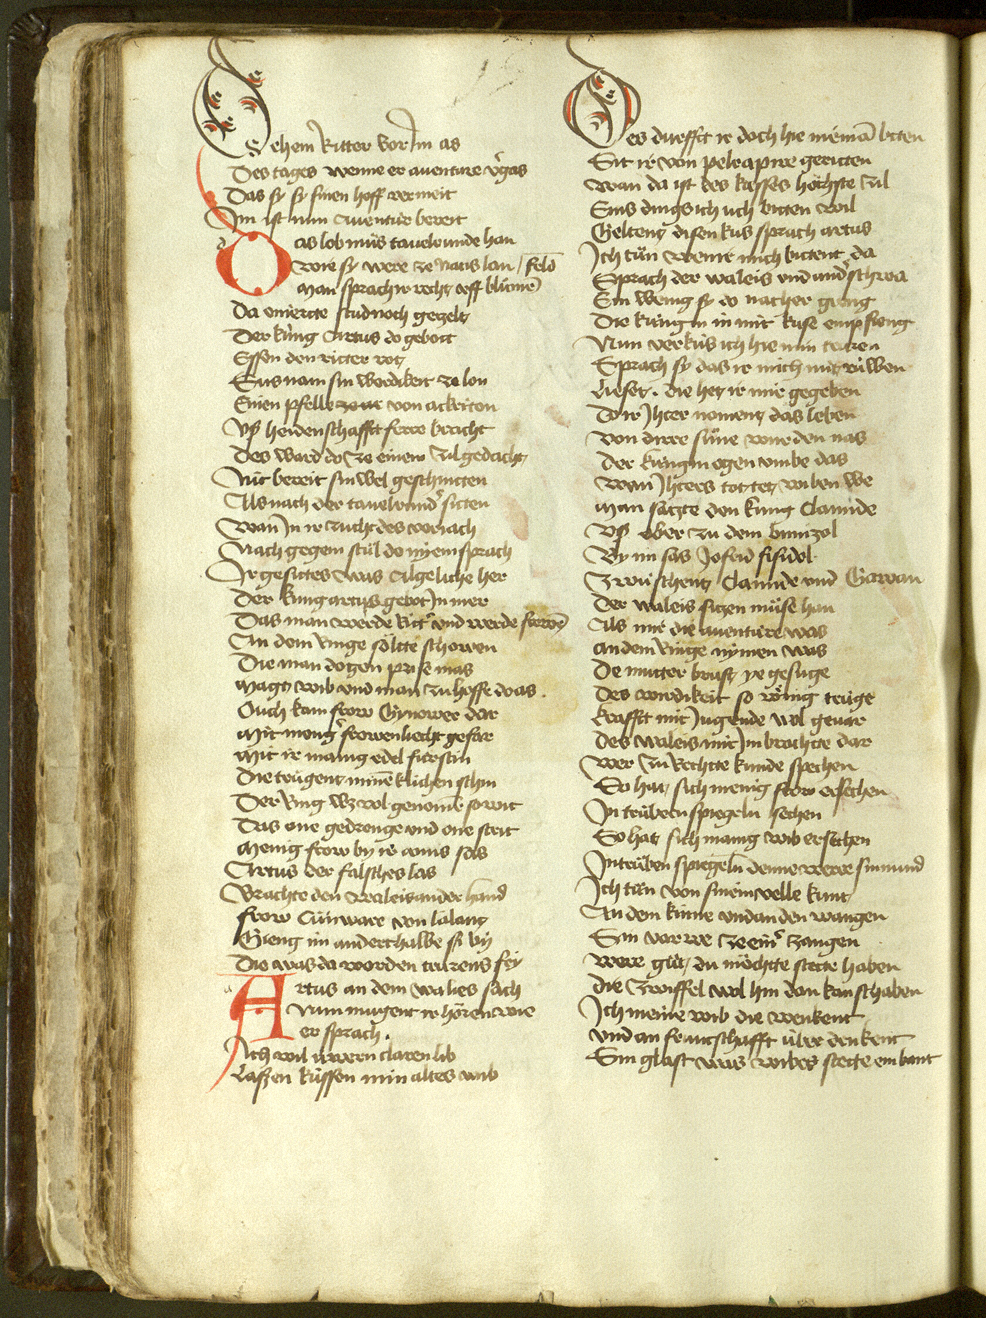 Sehem Ritter vor Im as
Des tages wenne er auenture v̓gas
Das sy sy sinen hoff vermeit
Im ist nun auentúr bereit
Das lob můs tauelrunde han
wie sy were ze Nantis lan / feld
Man sprach ir recht vff blůmē
Da enierrte stud noch gezelt
Der kúng Artus do gebott
Essen den ritter rott
Sus nam sin werdikeit ze lon
Einen pfelle zwar von ackriton
Vß heidenschafft ferre bracht
Des ward do ze einem zil gedacht
Nit bereit sinwel geschnitten
Als nach der tauelrund̓ sitten
Wan In ir zucht des veriach
Nach gegem stůl do nyemen sprach
Ir gesittes was algeliche her
Der kúng artus gebot In mer
Das man werde Ritt̓ vnd werde frowē
An dem Ringe sóltte schowen
Die man do gen prise mas
Magt wib vnd man zů hoffe do as
Ouch kam frow Gynower dar
Mit meng̓ frowen liecht gefar
Mit ir manig edel fúrstin
Die trůgent minēklichen schin
Der Ring wz wol genomē so wit
Das one gedrenge vnd one strit
Menig frow by ir amis sas
Artus der falsches las
Brachte den waleis an der hand
frow Cůnware von lalant
Gieng im anderthalbe sy by
Die was da worden trurens fry
Artus an dem waleis sach
Nun mugent ir hören wie
er sprach.
Ich wil úwern claren lib
Laßen kússen min altes wib
Des durfft ir doch hie niemā bitten
Sit ir von pelrapire geritten
wan da ist des kusses hóchste zil
Eins dings ich úch bitten wil
Geltent disen kus sprach artus
Ich tůn wenne mich bittent da
Sprach der waleis vnd and̓schwa
Ein wenig sy do nacher gieng
Die kúngin in mit kuse empfieng
Nun verkús ich hie min truren
Sprach sy das ir mich mit rúwen
Liesset. die het ir mir gegeben
Do ir Ihter noment das leben
Von dirre sůne wurden nas
Der kúngin ogen vmbe das
wan Ihters tot tet wiben we
Man sazte den kúng Clamide
Vß ober zu dem bimizol
By im sas Jofrid fisidol
Zwúschent Clamide vnd Gawan
Der waleis sitzen můse han
Als mir die auentúre was
an dem Ringe nyemen was
De mutter brust ye gesuge
Des wirdikeit so wenig trúge
krafft mit Jugende wol geuar
Des waleis mit Im brachtte dar
wer zů Rechte kunde spechen
So hat sich menig frow ersechen
In trúben spiegeln sechen
So hat sich manig wib ersechen
In trúben spiegeln denne were sin mund
Ich tůn von sinem velle kunt
An dem kinne vnd an den wangen
Sin varwe ze ein̓ zangen
were gůt / dú móchtte stette haben
die zwiffel wol hin dan kan schaben
Ich meine wib die wenkent
vnd an fruntschafft úber denkent
Sin glast was wibes stette em bant